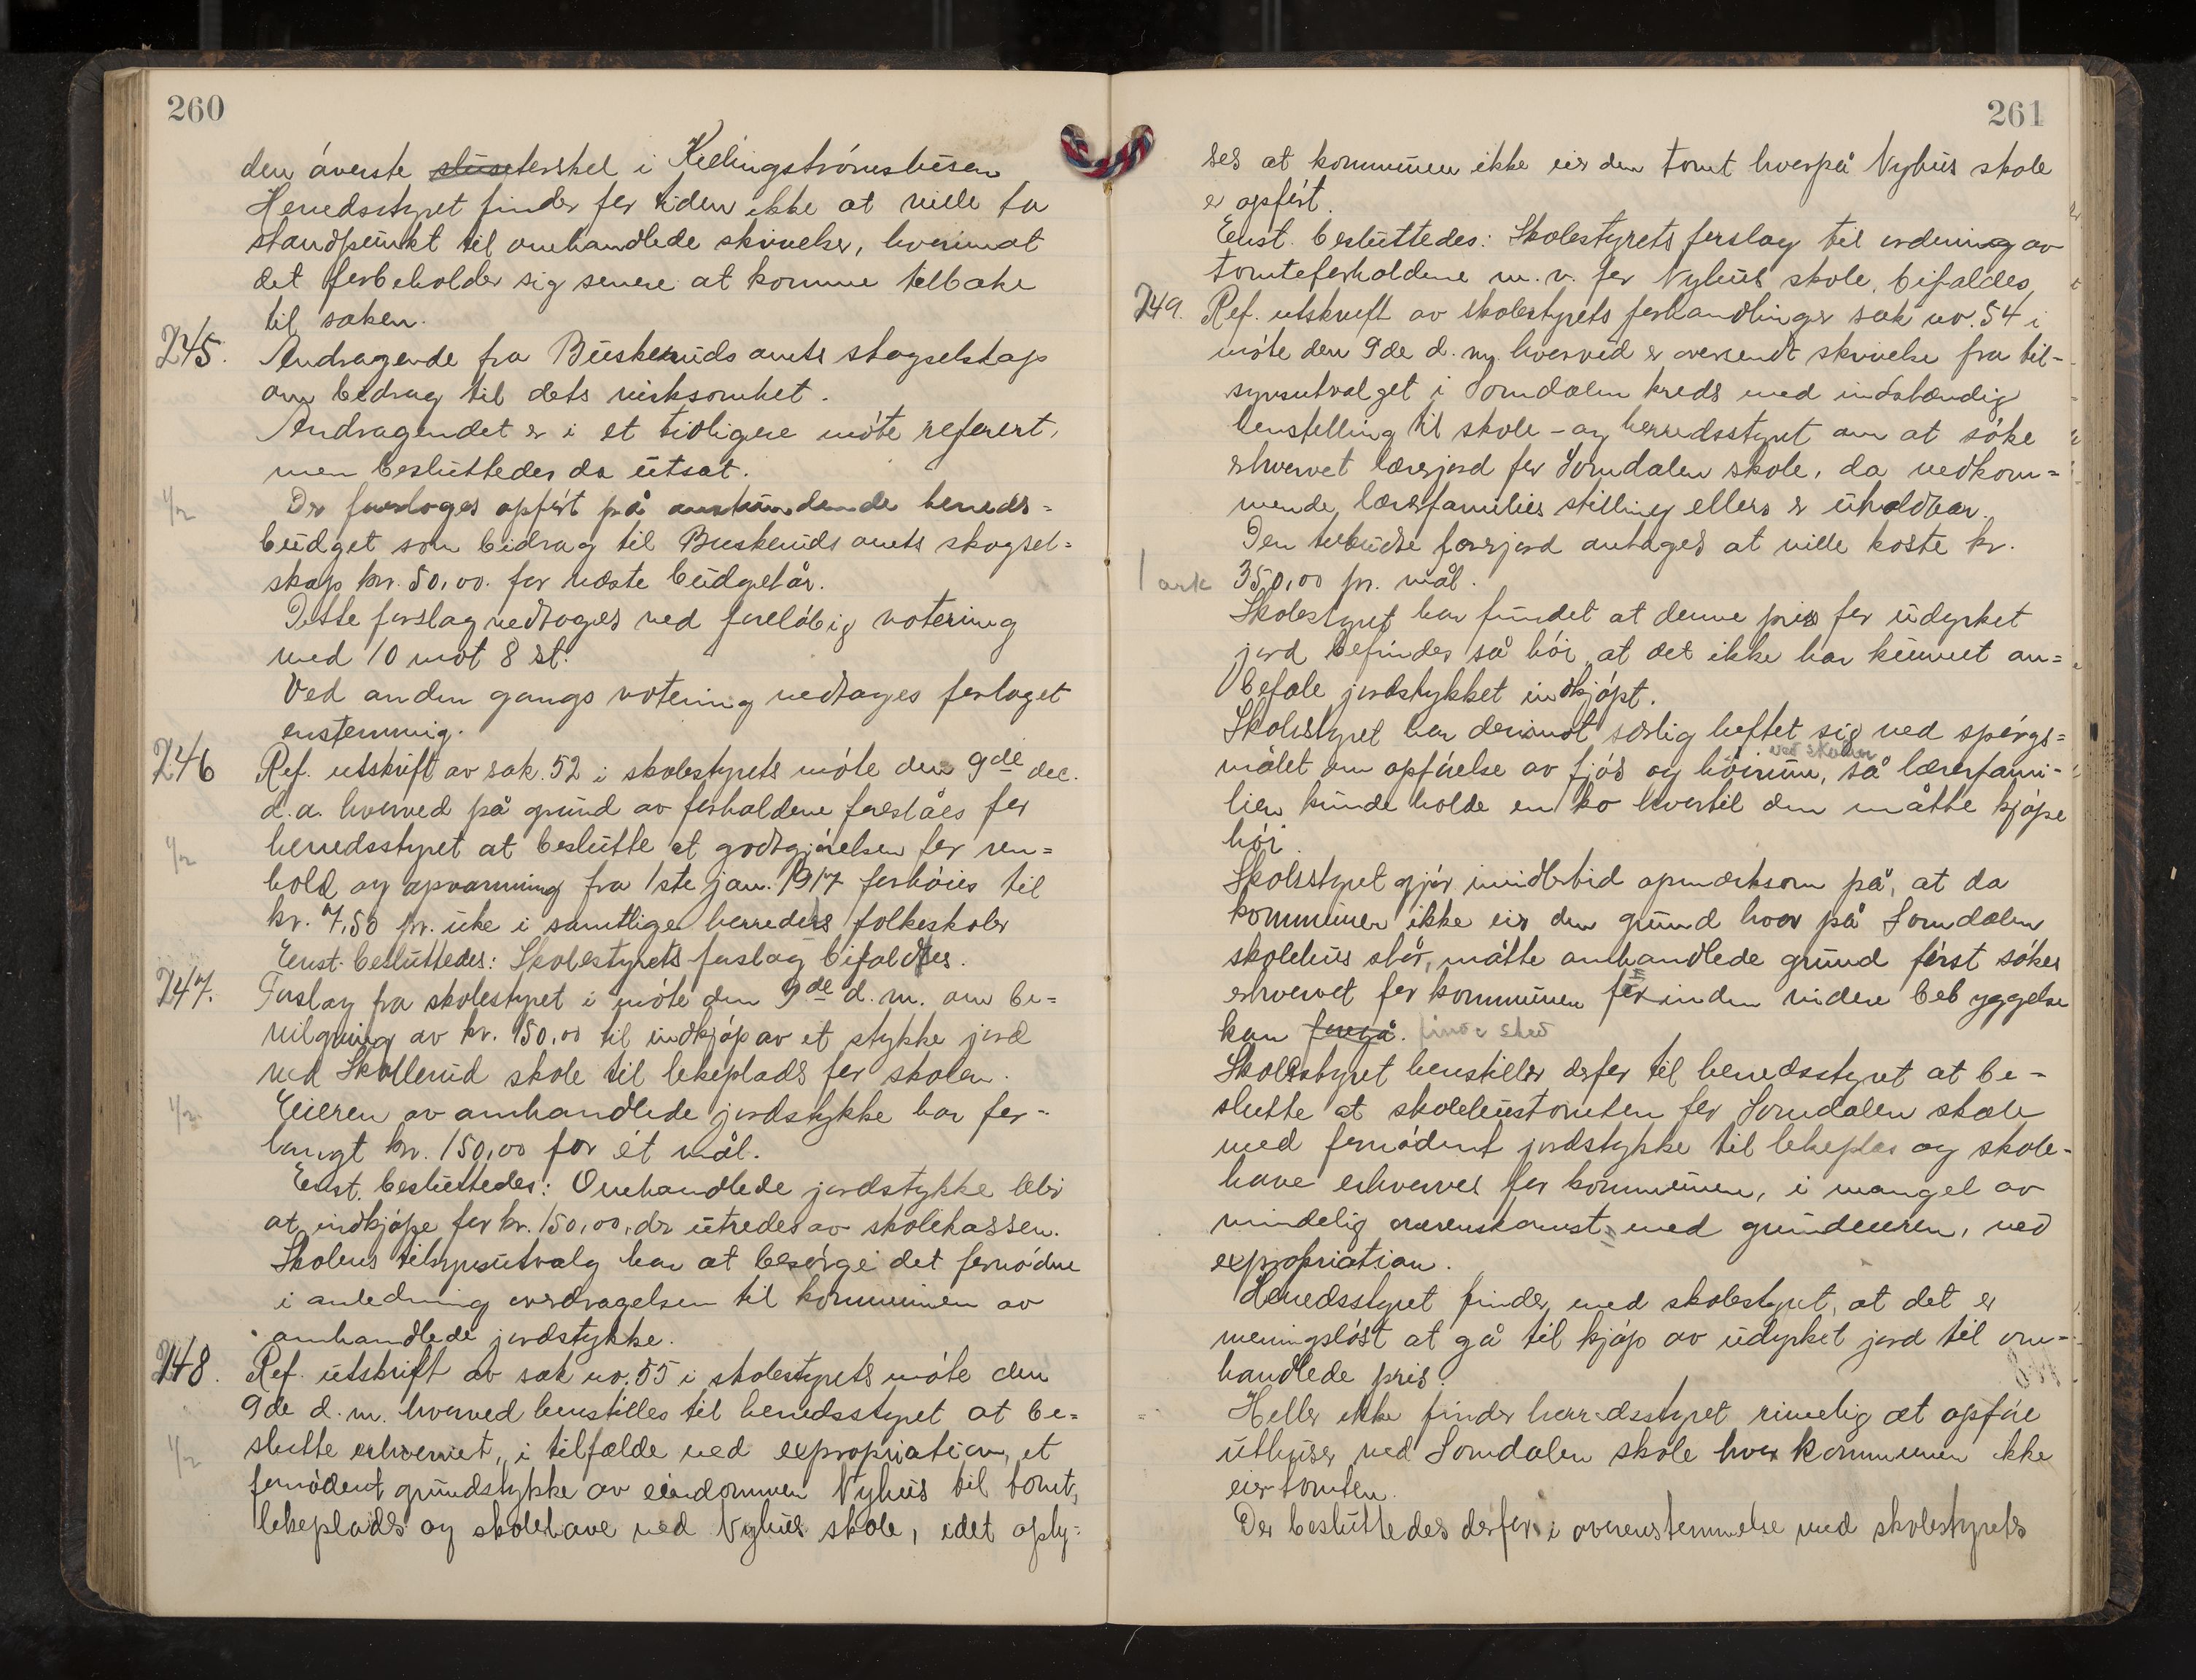 260
den øverste sluseterskel i Kiellingstrømslusen
Herredsstyret finder for tiden ikke at ville ta
standpunkt til omhandlede skrivelse, hvorimot
det forbeholder sig senere at komme tilbake
til saken.
245. Andragende fra Buskeruds amts skogselskap
om bidrag til dets virksomhet.
Andragendet er i et tidligere møte referert,
men besluttedes da utsat.
1/2 Der foresloges opført på anstundende herreds=
budget som bidrag til Buskeruds amts skogsel=
skap kr. 50,00. for næste budgetår.
Dette forslag vedtoges ved foreløbig votering
med 10 mot 8 st.
Ved anden gangs votering vedtages forslaget
enstemmig.
246 Ref. utskrift av sak. 52 i skolestyrets møte den 9de dec.
d.a. hvorved på grund av forholdene foreslåes for
1/2 herredsstyret at beslutte at godtgjørelsen for ren=
hold og opvarmning fra 1ste jan. 1917 forhøies til
kr. 7,50 pr. uke i samtlige herredets folkeskoler
Enst. besluttedes: Skolestyrets forslag bifaldtes.
247. Forslag fra skolestyret i møte den 9de d.m. om be=
vilgning av kr. 150,00 til indkjøp av et stykke jord
ved Skollerud skole til lekeplads for skolen.
1/2 Eieren av omhandlede jordstykke har for-
langt kr. 150,00 for ét mål.
Enst. besluttedes: Omhandlede jordstykke blir
at indkjøpe for kr. 150,00, der utredes av skolekassen.
Skolens tilsynsutvalg har at besørge det fornødne
i anledning overdragelsen til kommunen av
omhandlede jordstykke.
248. Ref. utskrift av sak no. 55 i skolestyrets møte den
9de d.m. hvorved henstilles til herredsstyret at be=
1/2 slutte erhvervet, i tilfælde ved expropriation, et
fornødent grundstykke av eiendommen Nyhus til tomt,
lekeplads og skolehave ved Nyhus skole, idet oply=
261
ses at kommunen ikke eier den tomt hvorpå Nyhus skole
er opført.
Enst. besluttedes: Skolestyrets forslag til ordning av
tomteforholdene m.v. for Nyhus skole, bifaldes
249. Ref. utskrift av skolestyrets forhandlinger sak no. 54 i
møte den 9de d. m. hvorved er oversendt skrivelse fra til-
synsutvalget i Jomdalen kreds med indstændig
henstilling til skole- og herredsstyret om at søke
erhvervet lærerjord for Jomdalen skole, da vedkom=
mende lærerfamilies stilling ellers er uholdbar.
Den tilbudte jord antages at ville koste kr.
1 ark 350,00 pr. mål.
Skolestyret har fundet at denne pris for udyrket
jord befindes så høi at det ikke har kunnet an=
befale jordstykket indkjøpt.
Skolestyret har derimot særlig heftet sig ved spørgs=
målet om opførelse av fjøs og høirum, ved skolen så lærerfami-
lien kunde holde en ko hvortil den måtte kjøpe
høi.
Skolestyret gjør imidlertid opmerksom på, at da
kommunen ikke eier den grund hvor på Jomdalen
skolehus står, måtte omhandlede grund først søkes
erhvervet for kommunen før inden videre bebyggelse
kan foregå. finde sted
Skolestyret henstiller derfor til herredsstyret at be-
slutte at skolehustomten for Jomdalen skole
med fornødent jordstykke til lekeplas og skole-
have erhverves for kommunen, i mangel av
mindelig overenskomst med grundeieren, ved
expropriation.
Herredsstyret finder, med skolestyret, at det er
meningsløst at gå til kjøp av udyrket jord til om=
handlede pris.
Heller ikke finder herredsstyret rimelig at opføre
uthuser ved Jomdalen skole hvor kommunen ikke
eier tomten.
Der besluttedes derfor i overensstemmelse med skolestyrets